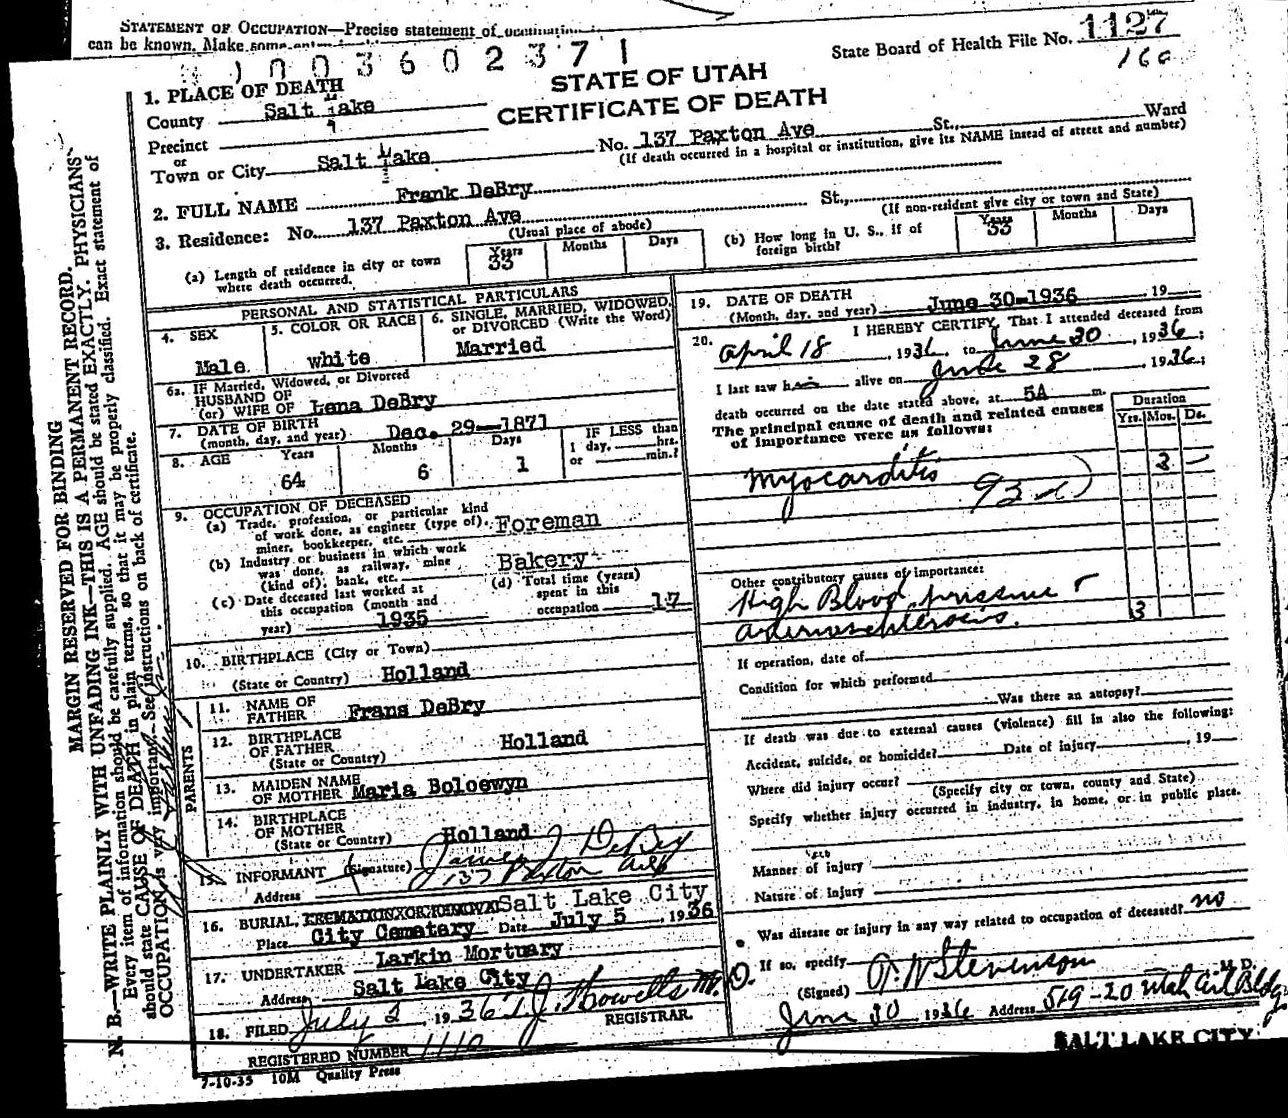 STATEMENT OF OCCUPATION—Precise statement of occupation
can be known. Make some
1003602371
State Board of Health File No. 1127
160
STATE OF UTAH
CERTIFICATE OF DEATH
1. PLACE OF DEATH
County Salt Lake
Precinct
or
Town or City Salt Lake No. 137 Paxton Ave St., Ward
(If death occurred in a hospital or institution, give its NAME instead of street and number)
2. FULL NAME Frank DeBry
3. Residence: No. 137 Paxton Ave St.,
(Usual place of abode) (If non-resident give city or town and State)
(a) Length of residence in city or town where death occurred. Years 33 Months Days
(b) How long in U. S., if of foreign birth? Years 33 Months Days
PERSONAL AND STATISTICAL PARTICULARS
4. SEX Male
5. COLOR OR RACE white
6. SINGLE, MARRIED, WIDOWED, or DIVORCED (Write the Word) Married
6a. IF Married, Widowed, or Divorced
HUSBAND OF
(or) WIFE OF Lena DeBry
7. DATE OF BIRTH
(month, day, and year) Dec. 29--1871
8. AGE Years 64 Months 6 Days 1 IF LESS than 1 day, hrs. or min.?
9. OCCUPATION OF DECEASED
(a) Trade, profession, or particular kind
of work done, as engineer (type of), Foreman
miner, bookkeeper, etc.
(b) Industry or business in which work
was done, as railway, mine Bakery
(kind of), bank, etc.
(c) Date deceased last worked at
this occupation (month and
year) 1935
(d) Total time (years)
spent in this
occupation 17
10. BIRTHPLACE (City or Town)
(State or Country) Holland
PARENTS
11. NAME OF
FATHER Frans DeBry
12. BIRTHPLACE
OF FATHER Holland
(State or Country)
13. MAIDEN NAME
OF MOTHER Maria Boloewyn
14. BIRTHPLACE
OF MOTHER
(State or Country) Holland
15. INFORMANT (Signature) James J DeBry
Address 137 Paxton Ave
16. BURIAL, CREMATION OR REMOVAL Salt Lake City
Place City Cemetary Date July 5 1936
17. UNDERTAKER Larkin Mortuary
Address Salt Lake City
18. FILED July 2, 1936 T. J. Howells M. D.
REGISTRAR.
REGISTERED NUMBER 1110
7-10-35 10M Quality Press
19. DATE OF DEATH
(Month, day, and year) June 30-1936 19
20. I HEREBY CERTIFY, That I attended deceased from
April 18, 1936 to June 30, 1936
I last saw him alive on June 28 1936;
death occurred on the date stated above, at 5A m.
The principal cause of death and related causes
of importance were as follows:
Duration
Yrs. Mos. Ds.
Myocarditis 3 —
93
Other contributory causes of importance:
High Blood pressure
arteriosclerosis. 3
If operation, date of
Condition for which performed
Was there an autopsy?
If death was due to external causes (violence) fill in also the following:
Accident, suicide, or homicide? Date of injury , 19
Where did injury occur?
(Specify city or town, county and State)
Specify whether injury occurred in industry, in home, or in public place.
Manner of injury
Nature of injury
Was disease or injury in any way related to occupation of deceased? no
If so, specify
(Signed) A. W Stevenson M. D.
June 30 1936 Address 519-20 Utah Art Bldg
SALT LAKE CITY
MARGIN RESERVED FOR BINDING
N. B.—WRITE PLAINLY WITH UNFADING INK—THIS IS A PERMANENT RECORD.
Every item of information should be carefully supplied. AGE should be stated EXACTLY. PHYSICIANS
should state CAUSE OF DEATH in plain terms, so that it may be properly classified. Exact statement of
OCCUPATION is very important. See instructions on back of certificate.